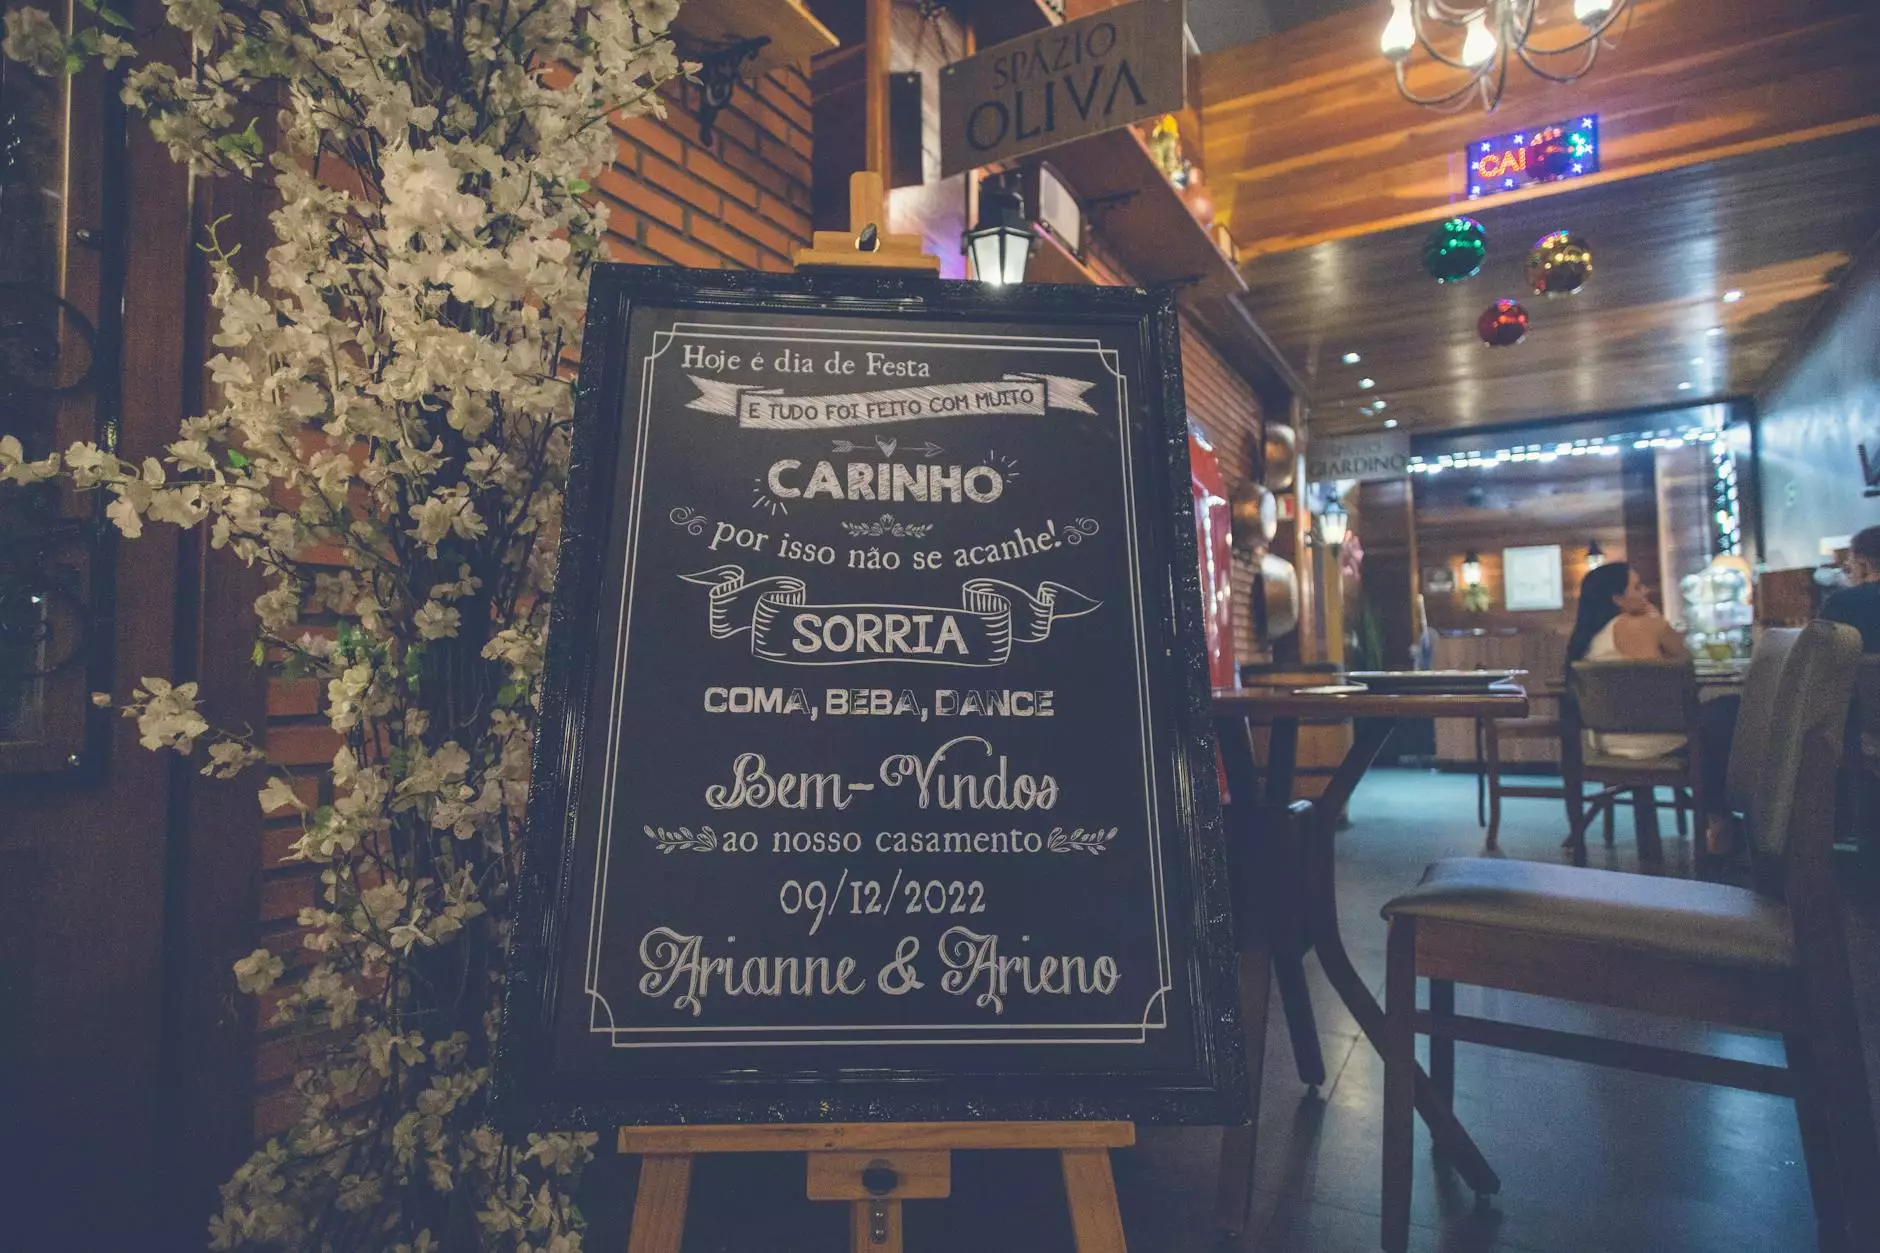 SPAZIO
OLIVA
CAI
GIARDINO
Hoje é dia de Festa
E TUDO FOI FEITO COM MUITO
CARINHO
por isso não se acanhe!
SORRIA
COMA, BEBA, DANCE
Bem-Vindos
ao nosso casamento
09/12/2022
Arianne & Arieno